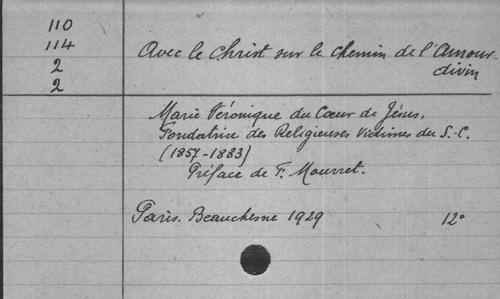 110
114
2
2
Avec le Christ sur le chemin de l'Amour
divin
Marie Véronique du Cœur de Jésus,
Fondatrice des Religieuses Victimes du S.-C.
(1857-1883)
Préface de F. Mourret.
Paris. Beauchesne 1929 12°